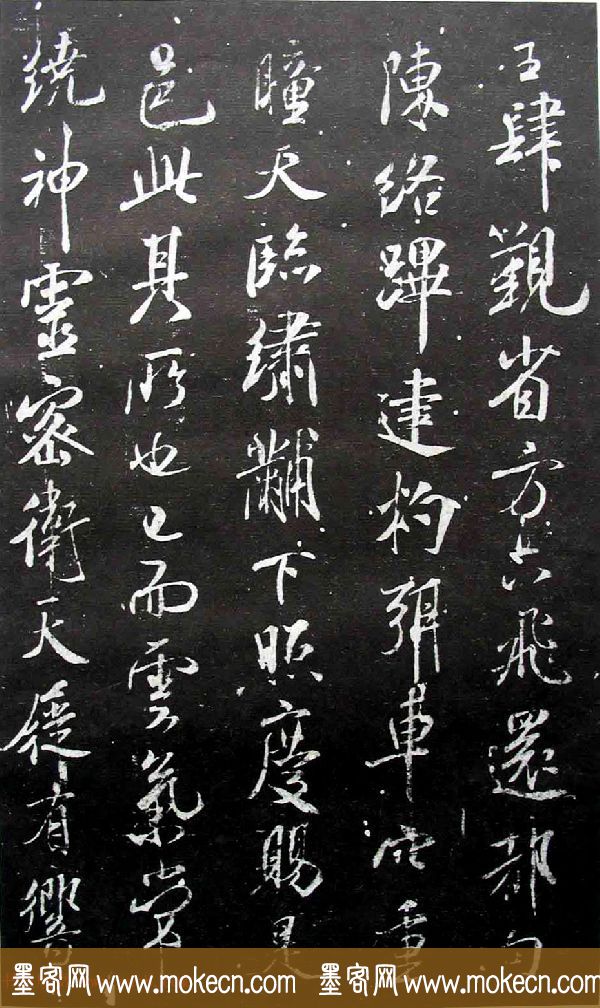 王肆覲省方六飛還都自
陳絡蹕建杓弭車
瞳天臨繡黼下照慶賜
邑此其所也已而雲氣常
繞神靈密衛天筵有響
墨客网 www.mokecn.com 墨客网 www.mokecn.com